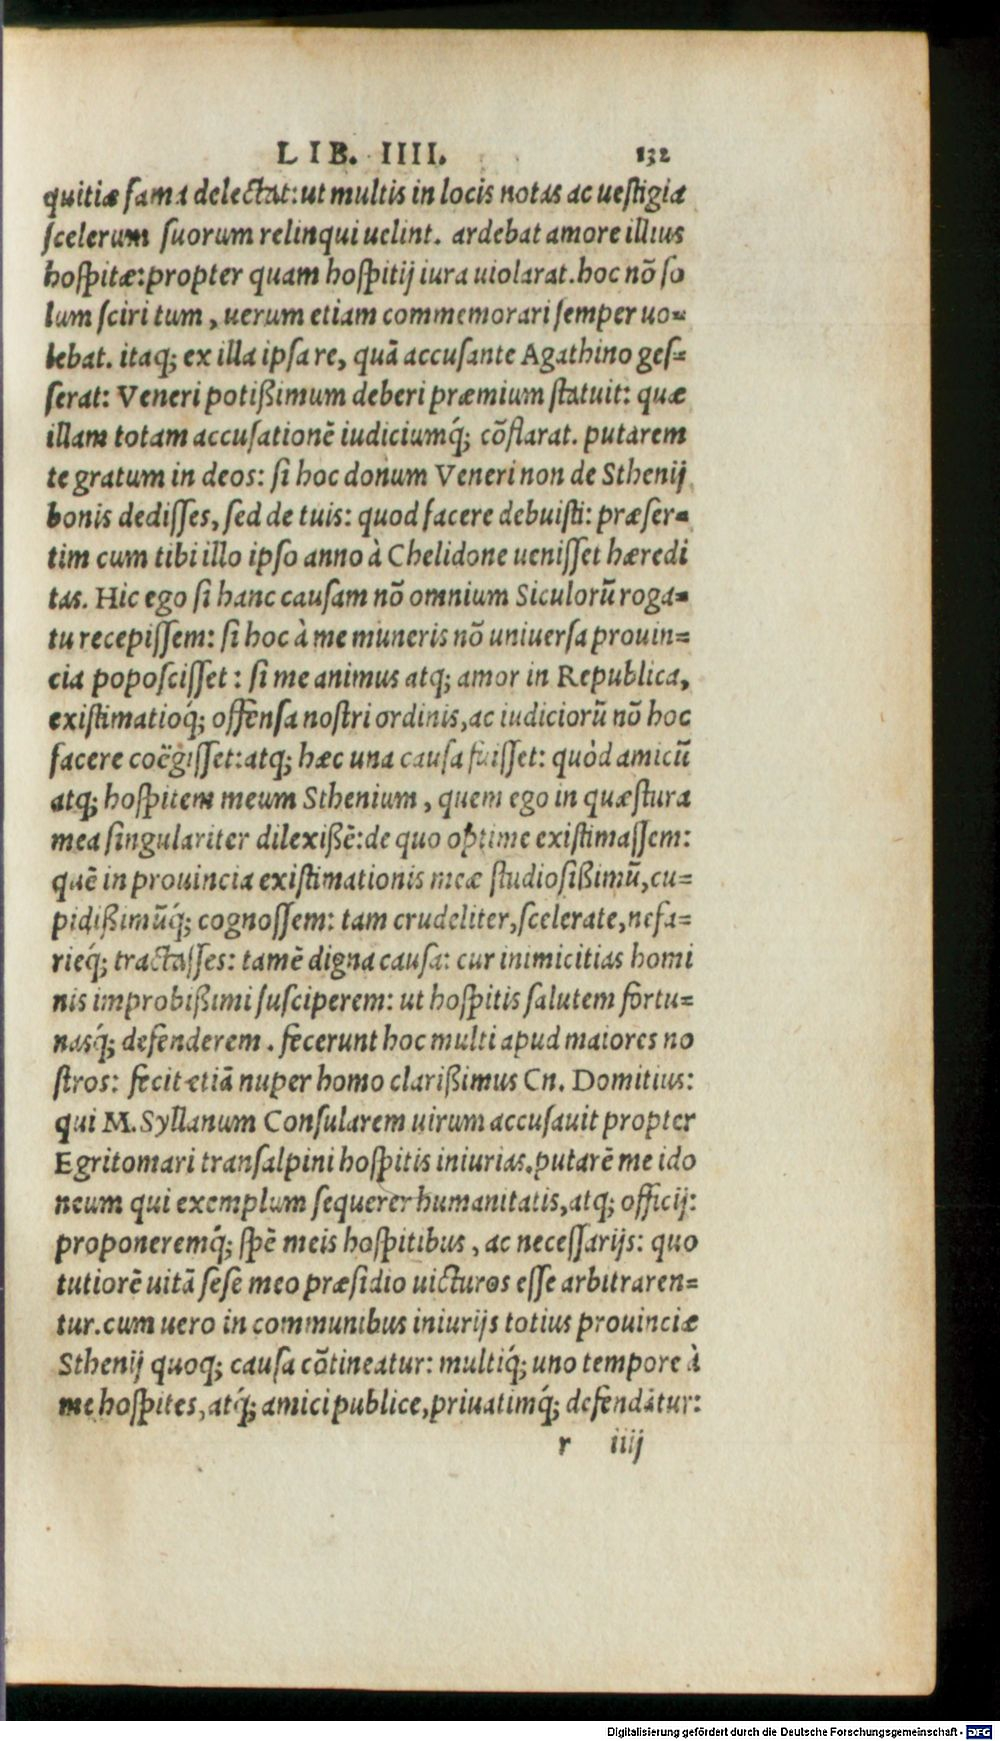 LIB. IIII. 132
quitiæ fama delectat: ut multis in locis notas ac uestigia
scelerum suorum relinqui uelint. ardebat amore illius
hospitæ: propter quam hospitij iura uiolarat. hoc nõ so
lum sciri tum, uerum etiam commemorari semper uo-
lebat. itaq; ex illa ipsa re, quã accusante Agathino ges-
serat: Veneri potißimum deberi præmium statuit: quæ
illam totam accusationẽ iudiciumq́; cõflarat. putarem
te gratum in deos: si hoc donum Veneri non de Sthenij
bonis dedisses, sed de tuis: quod facere debuisti: præser-
tim cum tibi illo ipso anno à Chelidone uenisset hæredi
tas. Hic ego si hanc causam nõ omnium Siculorũ roga-
tu recepissem: si hoc à me muneris nõ uniuersa prouin-
cia poposcisset: si me animus atq; amor in Republica,
existimatioq́; offensa nostri ordinis, ac iudiciorũ nõ hoc
facere coëgisset: atq; hæc una causa fuisset: quòd amicũ
atq; hospitem meum Sthenium, quem ego in quæstura
mea singulariter dilexißẽ: de quo optime existimassem:
quẽ in prouincia existimationis meæ studiosißimũ, cu-
pidißimũq́; cognossem: tam crudeliter, scelerate, nefa-
rieq́; tractasses: tamẽ digna causa: cur inimicitias homi
nis improbißimi susciperem: ut hospitis salutem fortu-
nasq́; defenderem. fecerunt hoc multi apud maiores no
stros: fecit etiã nuper homo clarißimus Cn. Domitius:
qui M. Syllanum Consularem uirum accusauit propter
Egritomari transalpini hospitis iniurias. putarẽ me ido
neum qui exemplum sequerer humanitatis, atq; officij:
proponeremq́; spẽ meis hospitibus, ac necessarijs: quo
tutiorẽ uitã sese meo præsidio uicturos esse arbitraren-
tur. cum uero in communibus iniurijs totius prouinciæ
Sthenij quoq; causa cõtineatur: multiq́; uno tempore à
me hospites, atq́; amici publice, priuatimq́; defendãtur:
r iiij
Digitalisierung gefördert durch die Deutsche Forschungsgemeinschaft - DFG